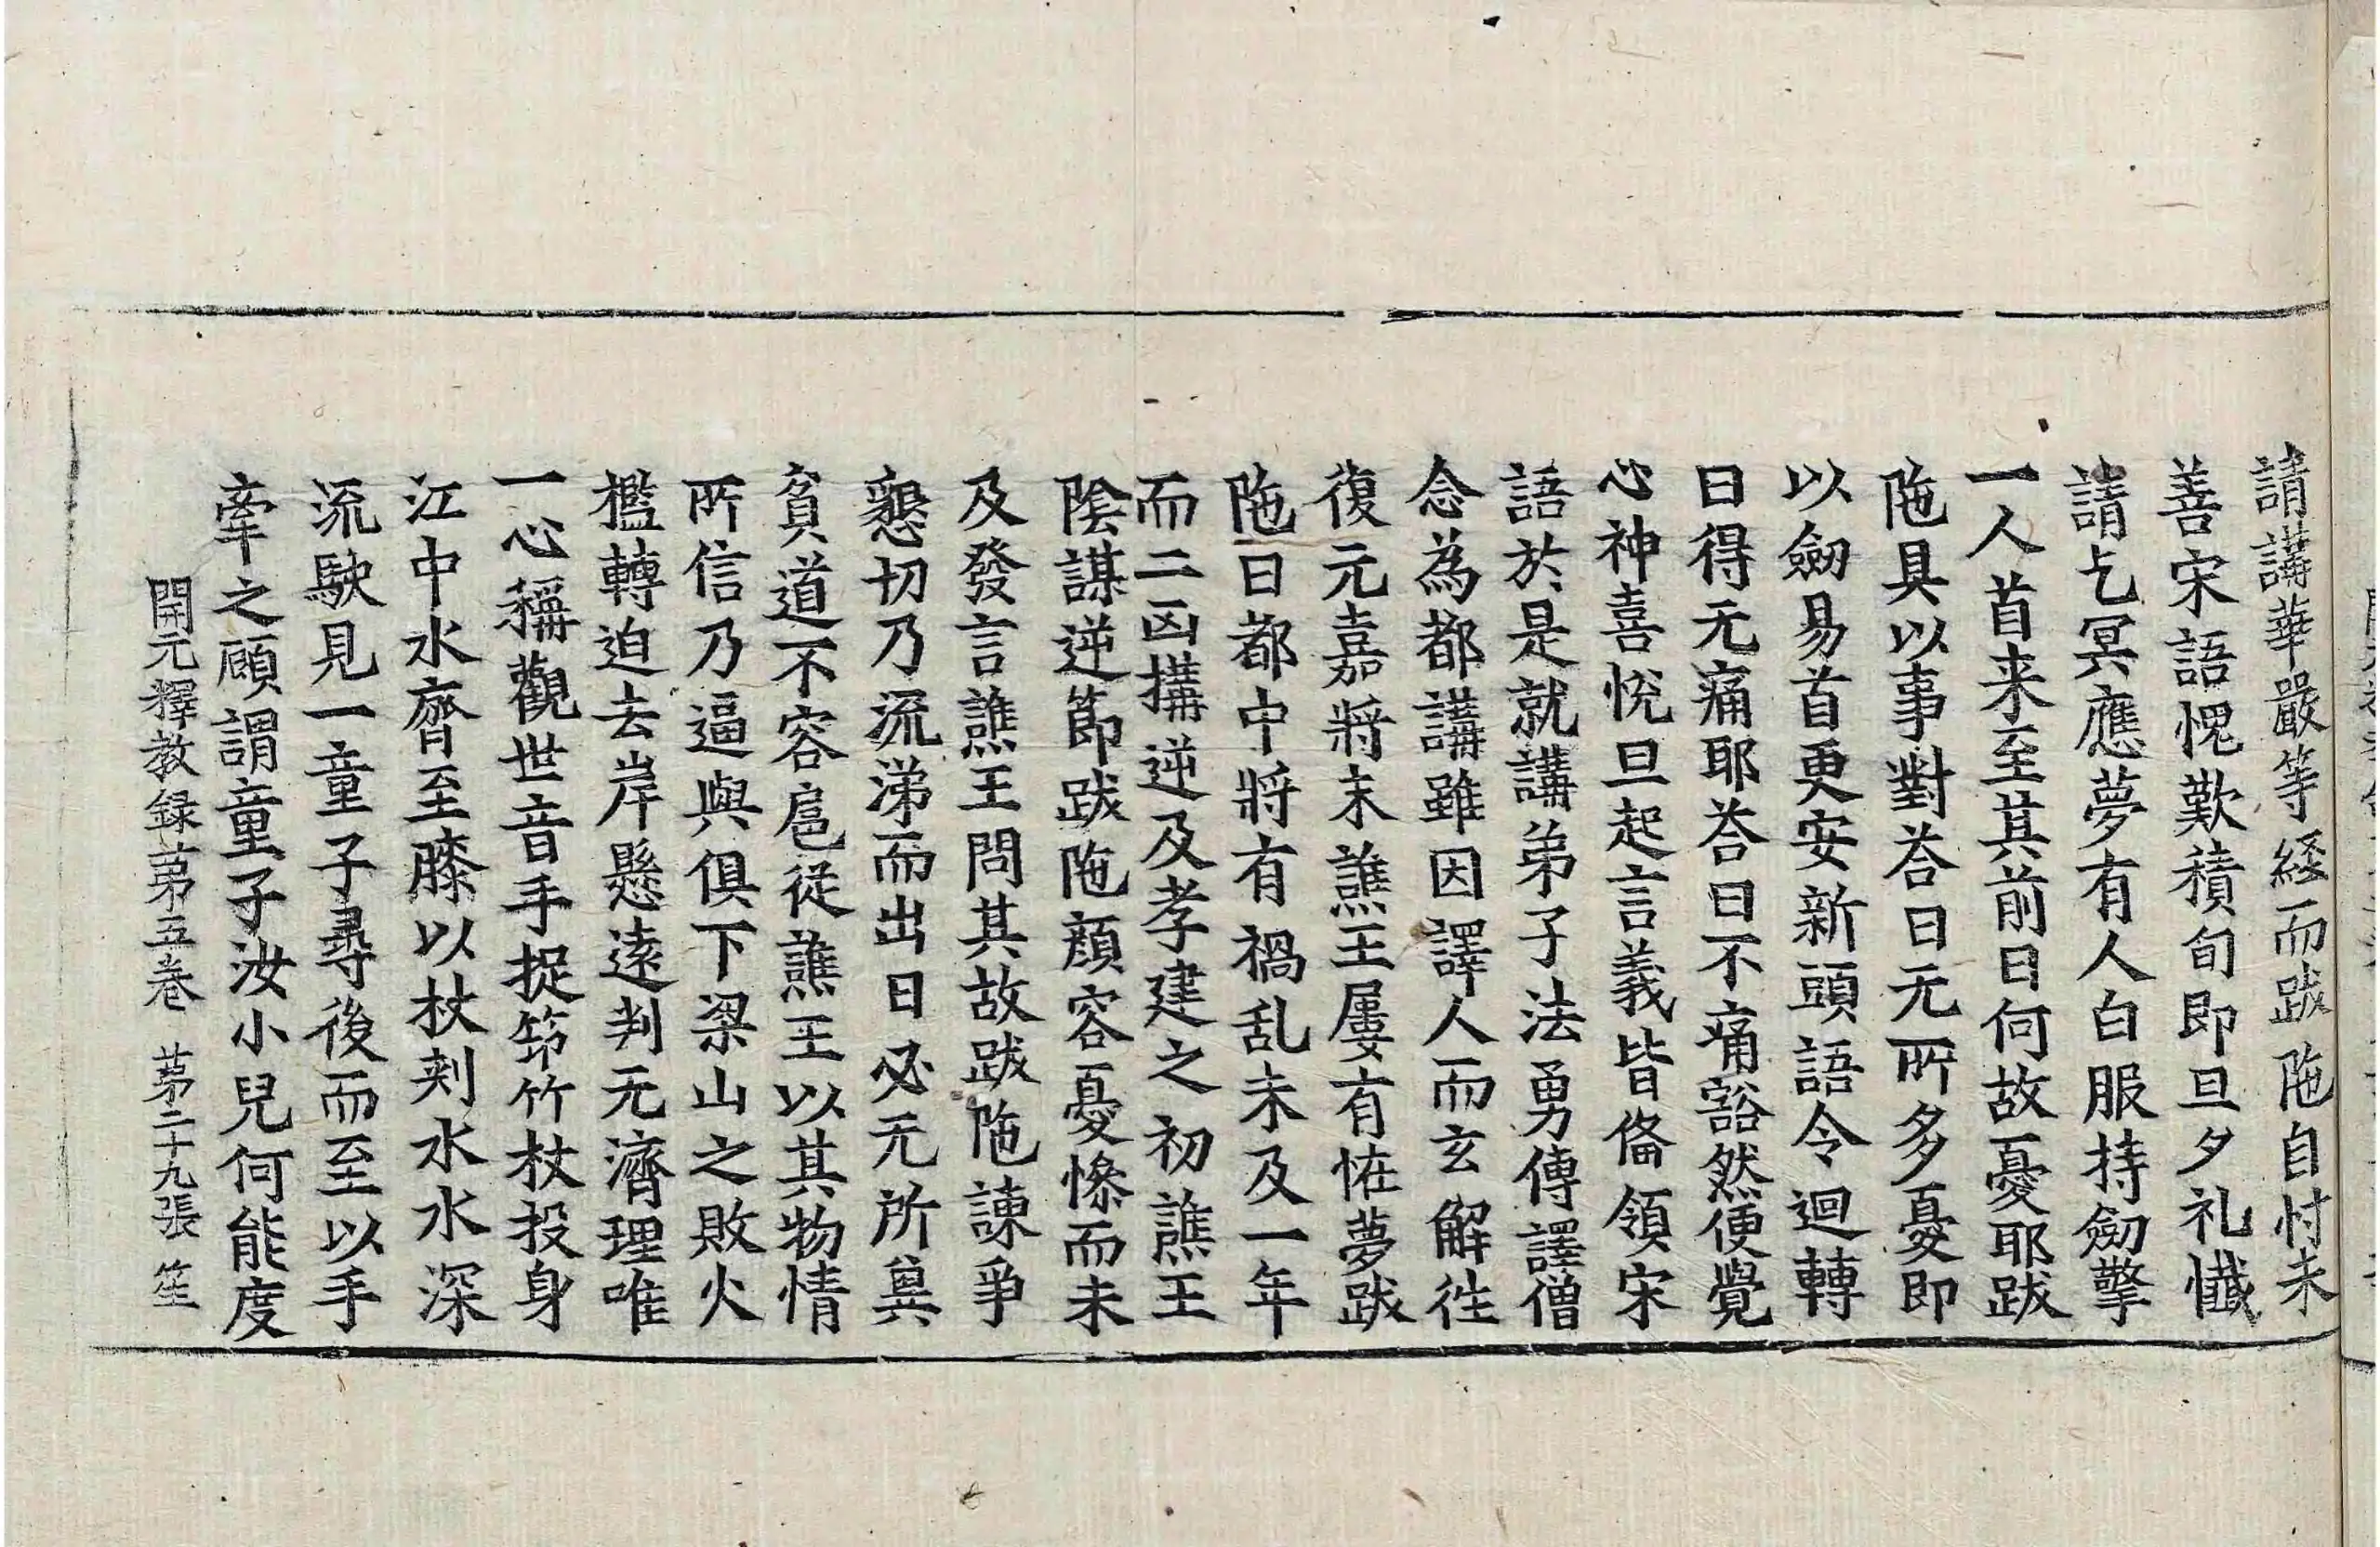 請講華嚴等経而跋陁自忖未
善宋語愧歎積旬即旦夕礼懺
請乞冥應夢有人白服持劒擎
一人首来至其前曰何故憂耶跋
陁具以事對荅曰无所多憂即
以劒易首更安新頭語令迴轉
曰得无痛耶荅曰不痛豁然便覺
心神喜悅旦起言義皆俻領宋
語於是就講弟子法勇傳譯僧
念為都講雖因譯人而玄解徃
復元嘉將末譙王屢有恠夢跋
陁曰都中將有禍乱未及一年
而二凶搆逆及孝建之初譙王
陰謀逆節跋陁顏容憂慘而未
及發言譙王問其故跋陁諫爭
懇切乃流涕而出曰必无所兾
貧道不容扈從譙王以其物情
所信乃逼與俱下梁山之敗火
檻轉迫去岸懸遠判无濟理唯
一心稱觀世音手捉笻竹杖投身
江中水齊至膝以杖刾水水深
流駛見一童子尋後而至以手
牽之顧謂童子汝小兒何能度
開元釋教録苐五卷 苐二十九張 笙